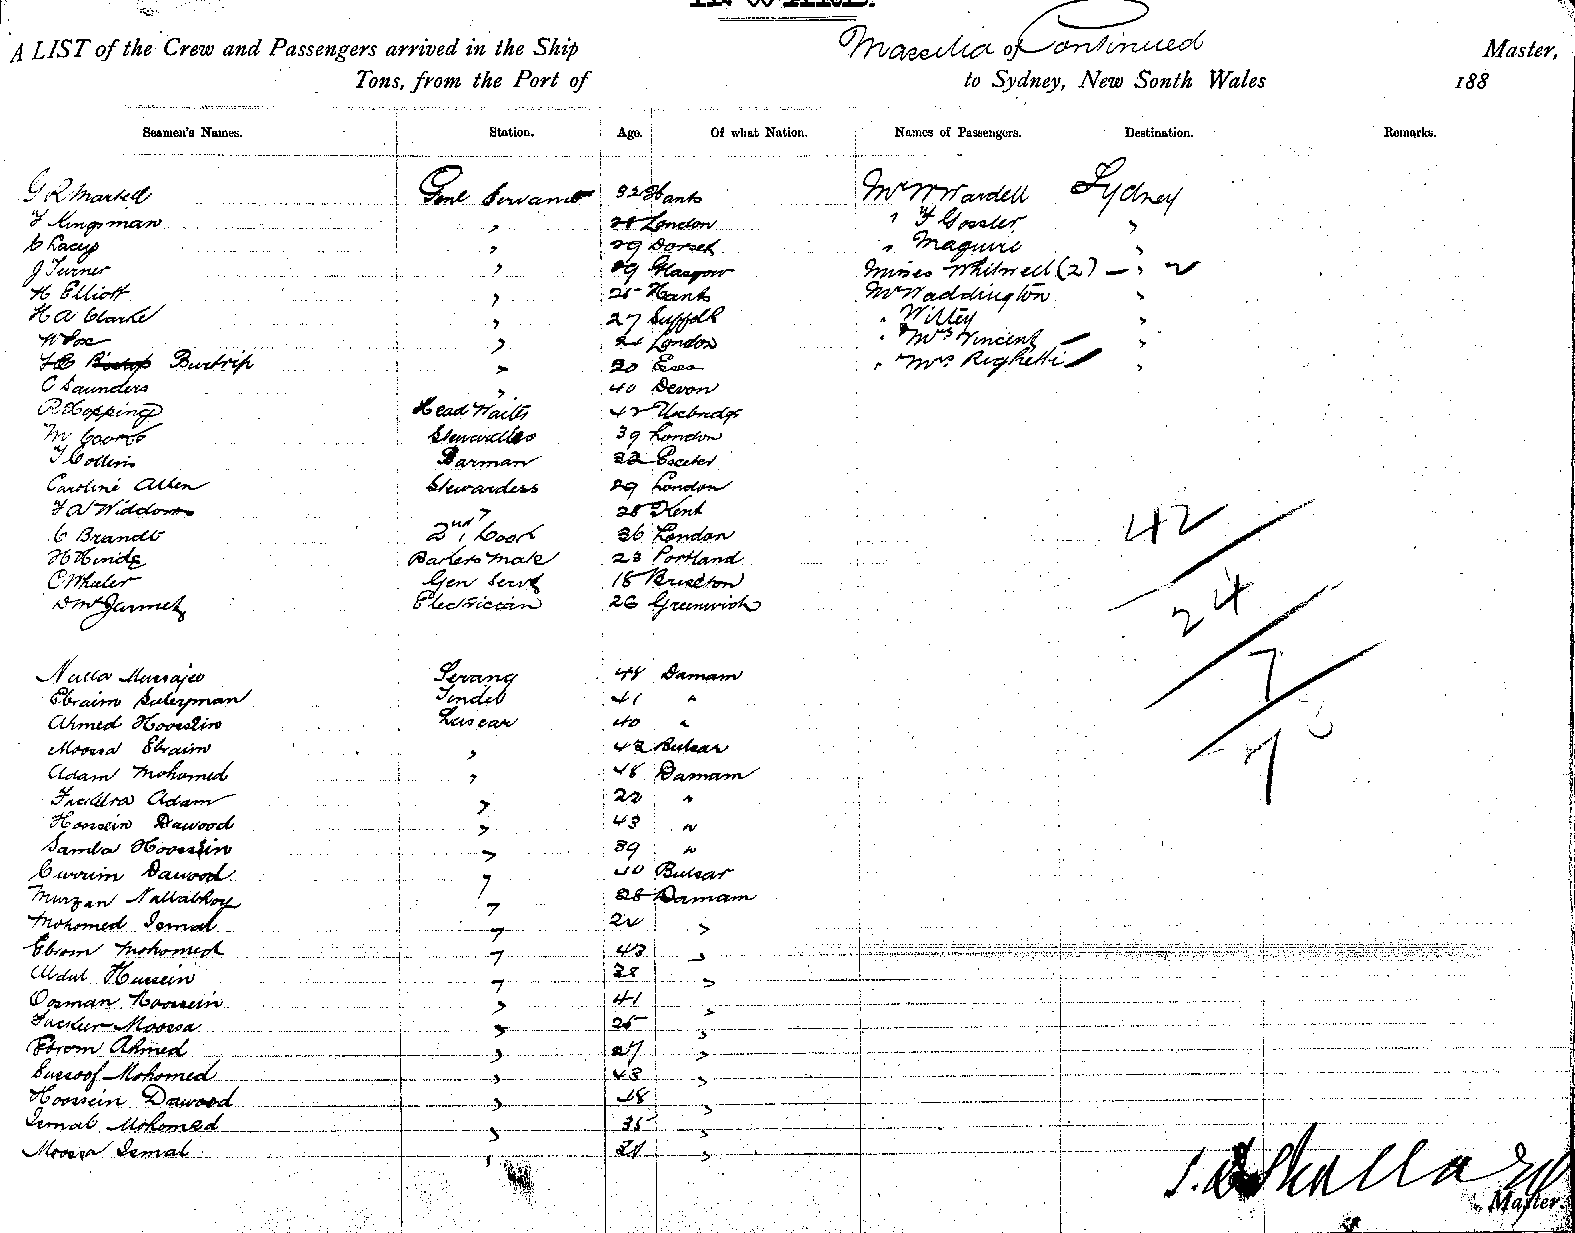 A LIST of the Crew and Passengers arrived in the Ship Massilia of Continued Master,
Tons, from the Port of to Sydney, New South Wales 188
Seamen's Names. Station. Age. Of what Nation. Names of Passengers. Destination. Remarks.
G R Martell Genl Servant 32 Hants Mr W Wardell Sydney
F Kingsman " 28 London " F Gossler "
C Lacey " 29 Dorset " Maguire "
J Turner " 29 Glasgow Misses Whitwell (2) — "
H Elliott " 25 Hants Mr Waddington "
H A Clarke " 27 Suffolk " Willey "
W Fox " 21 London " Mrs Vincent "
Burtrip " 20 " Mrs Righetti "
C Saunders " 40 Devon
R Hopping Head Waiter 42 Uxbridge
M Coombs Stewardess 39 London
F Collins Barman 22 Exeter
Caroline Allen Stewardess 29 London
F A Widdows " 28 Kent
C Brandt 2nd Cook 26 London
H Hinde Bakers Mate 23 Portland
C Wheeler Gen Servt 18 Brixton
Electrician 26 Greenwich
42
24
7
Serang 48 Damam
Ebraim Suleyman Tindel 41 "
Ahmed Hoossein Lascar 40 "
Moosa Ebraim " 42 Bulsar
Adam Mohomed " 48 Damam
Adam " 22 "
Hossein Dawood " 43 "
Samla Hoossein " 39 "
Currim Dawood " 40 Bulsar
Murzan Nallabhoy " 28 Damam
Mohomed Ismal " "
Ebrom Mohomed " 43 "
Abdul Hussein " 38 "
Oosman Hoossein " 41 "
Fuckeer Moosa " 25 "
Ebrom Ahmed " 27 "
Mohomed " 43 "
Hoossein Dawood " 18 "
Ismal Mohomed " 35 "
Moosa Ismal " "
Master.